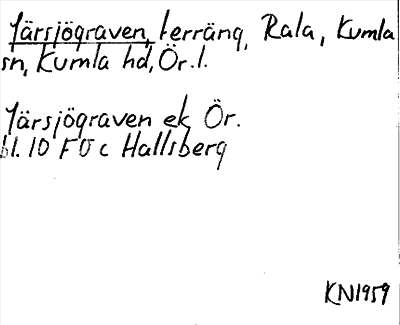 Järsjögraven, terräng, Rala, Kumla
sn, Kumla hd, Ör. l.
Järsjögraven ek Ör.
bl. 10 FÖ c Hallsberg
KN1959